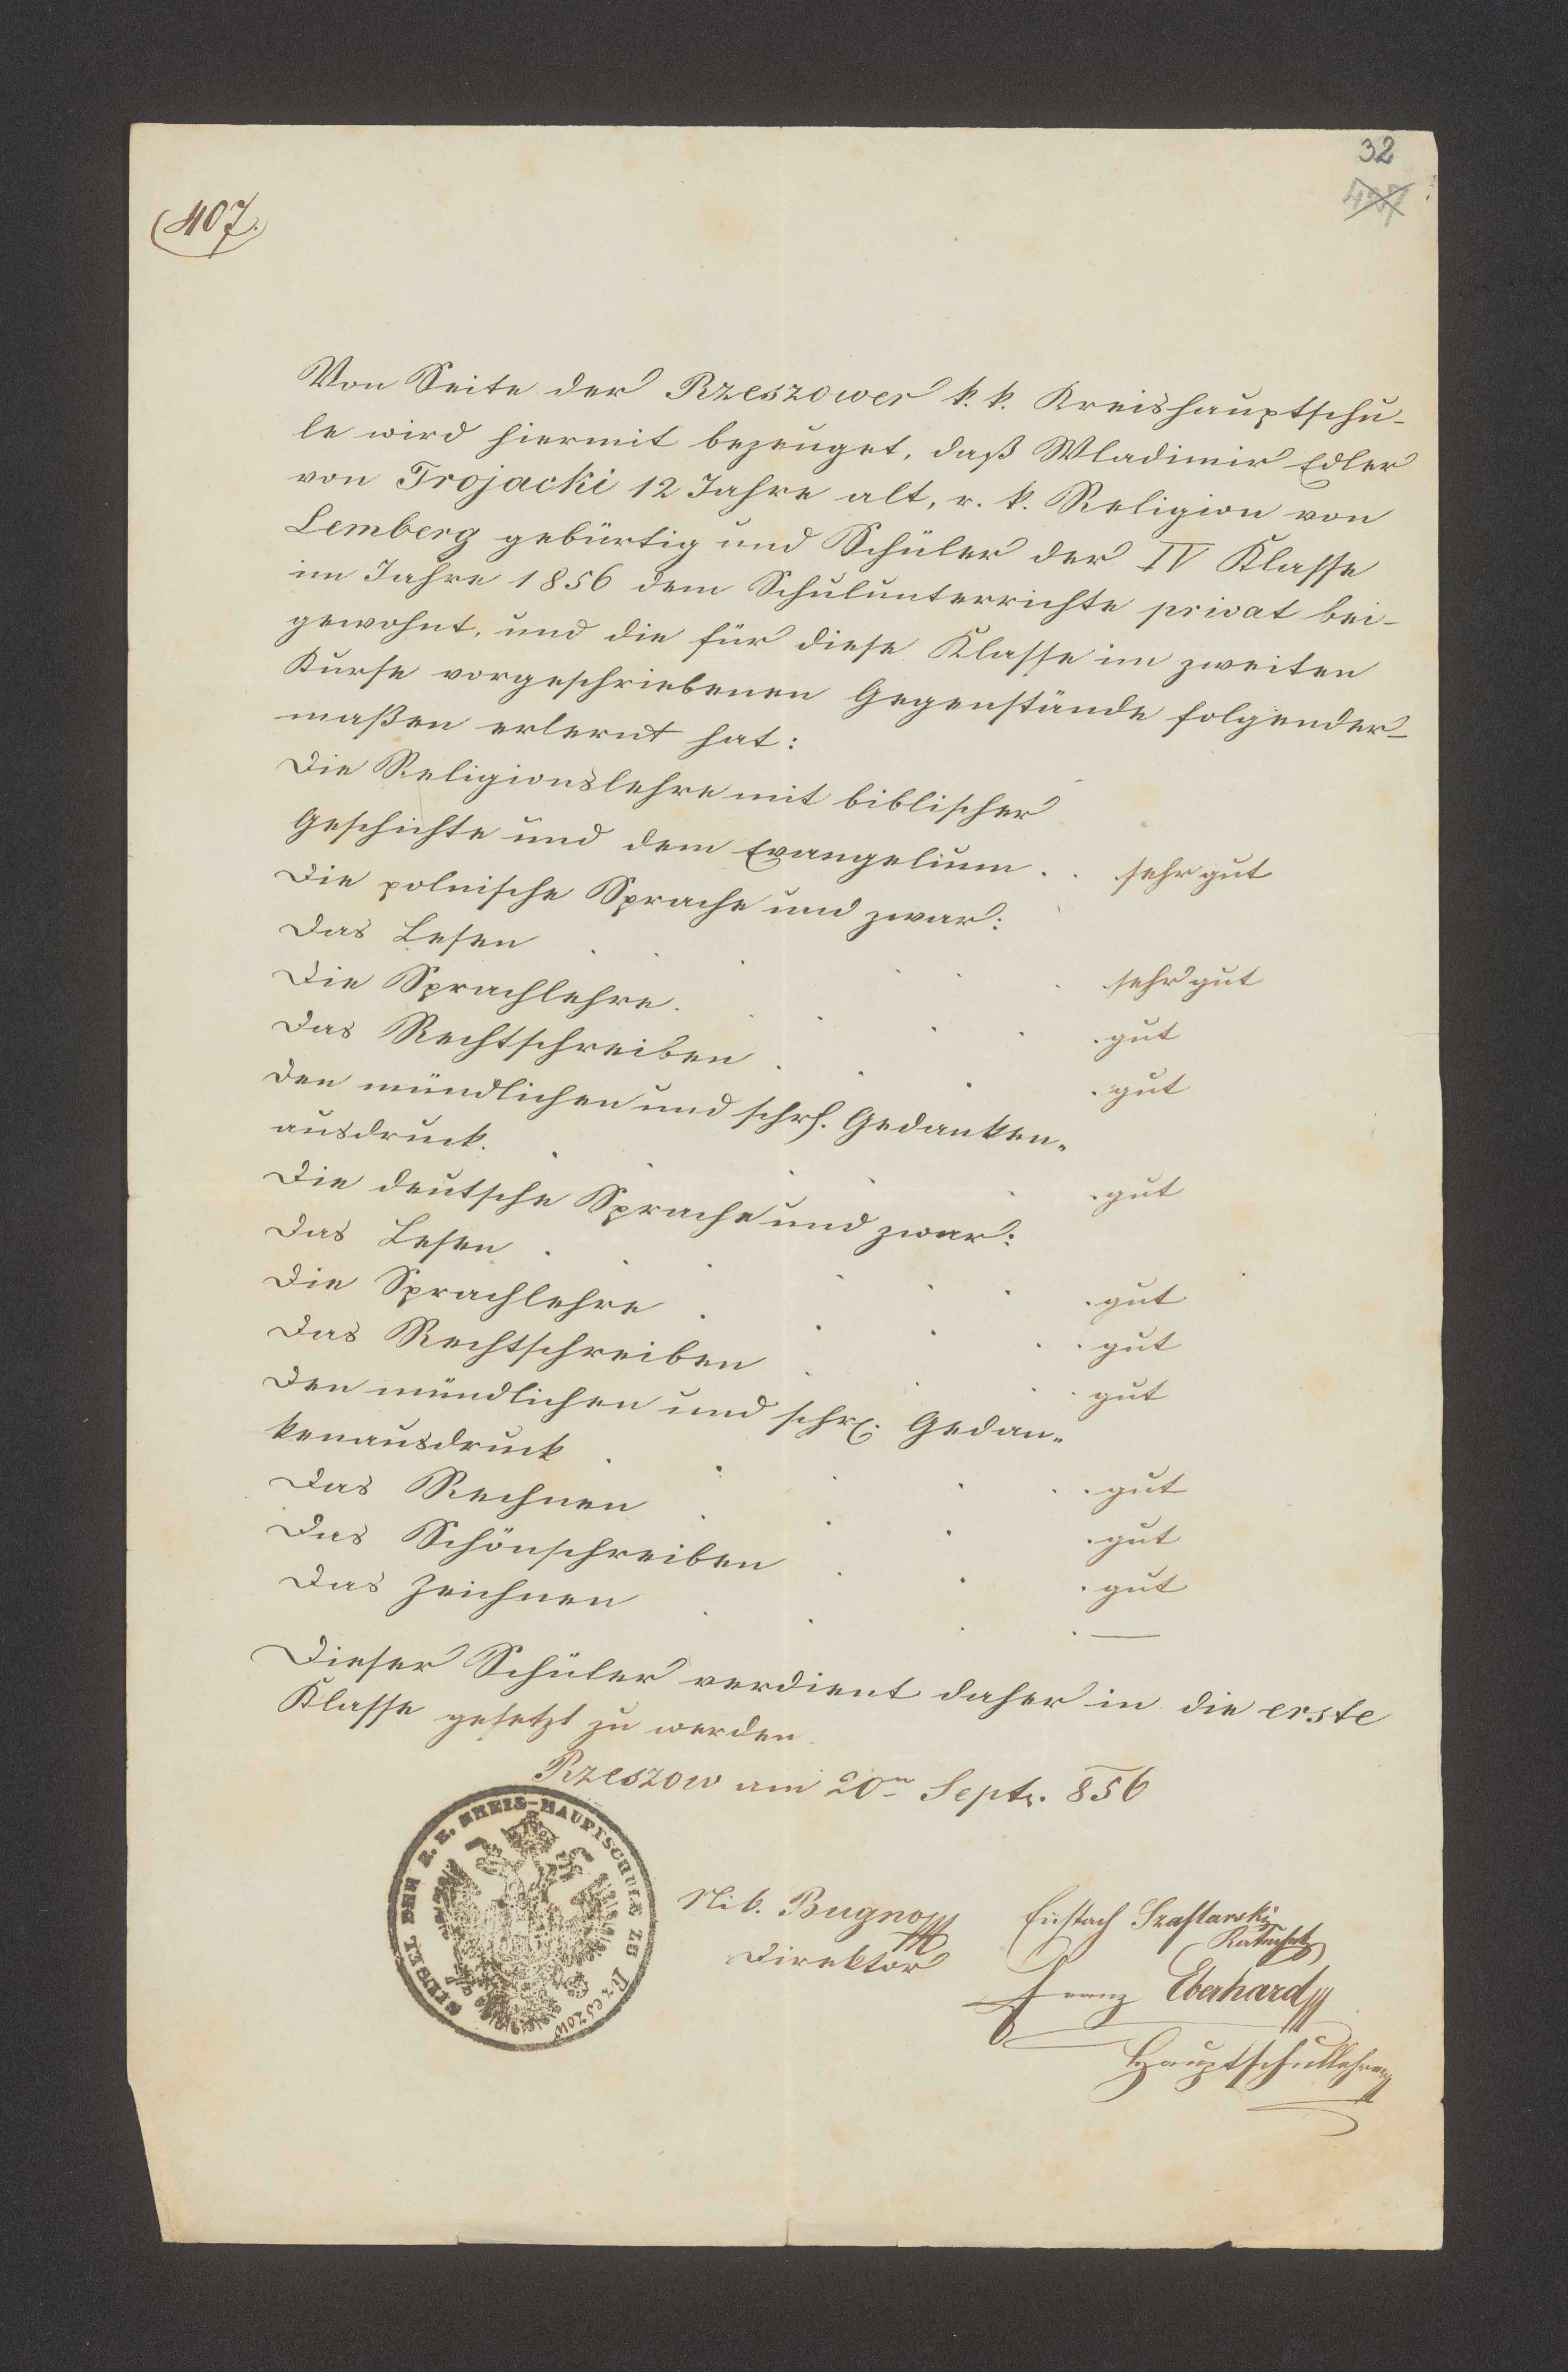 32
407
(407.)
Von Seite der Rzeszower k. k. Kreishauptschu-
le wird hiermit bezeuget, daß Wladimir Edler
von Trojacki 12 Jahre alt, r. k. Religion von
Lemberg gebürtig und Schüler der IV Klasse
im Jahre 1856 dem Schulunterrichte privat bei-
gewohnt, und die für diese Klasse im zweiten
Kurse vorgeschriebenen Gegenstände folgender-
maßen erlernt hat:
Die Religionslehre mit biblischer
Geschichte und dem Evangelium . . sehr gut
Die polnische Sprache und zwar:
Das Lesen . . . . . . sehr gut
Die Sprachlehre . . . . . gut
Das Rechtschreiben . . . . gut
Den mündlichen und schrf. Gedanken„
ausdruck. . . . . . . gut
Die deutsche Sprache und zwar:
Das Lesen . . . . . . gut
Die Sprachlehre . . . . . gut
Das Rechtschreiben . . . . gut
Den mündlichen und schr. Gedan„
kenausdruck . . . . . gut
Das Rechnen . . . . gut
Das Schönschreiben . . . gut
Das Zeichnen . . . . —
Dieser Schüler verdient daher in die erste
Klasse gesetzt zu werden.
Rzeszow am 20n Septr. 856
SIEGEL DER K. K. KREIS-HAUPTSCHULE ZU Rzeszow
Nik. Bugno
Direktor
Eustach Szaflarski
Katechet
Franz Eberhard
Hauptschullehrer